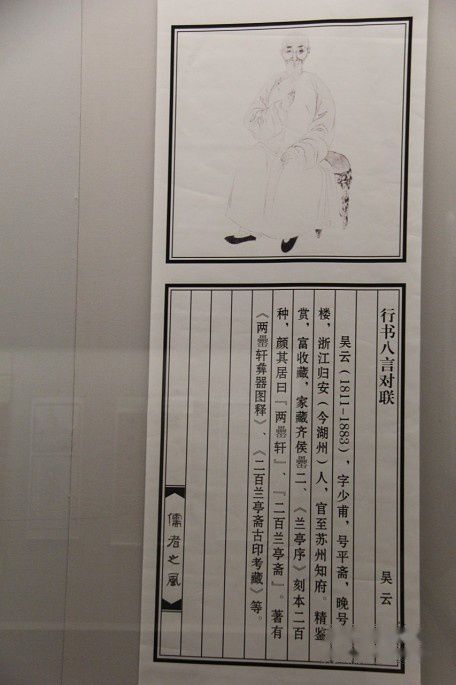 行书八言对联
吴云
吴云（1811-1883），字少甫，号平斋，晚号
楼，浙江归安（今湖州）人，官至苏州知府。精鉴
赏，富收藏，家藏齐侯罍二、《兰亭序》刻本二百
种，颜其居曰『两罍轩』、『二百兰亭斋』。著有
《两罍轩彝器图释》、《二百兰亭斋古印考藏》等。
儒者之风